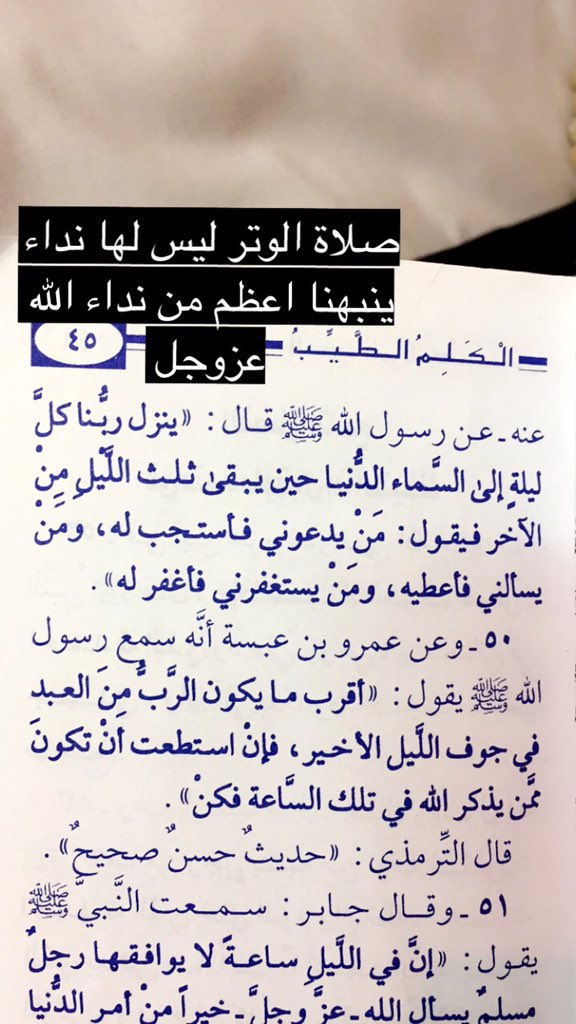 صلاة الوتر ليس لها نداء
ينبهنا اعظم من نداء الله
عزوجل
الْكَلِمُ الـطَّـيِّـبُ
٤٥
عنه ـ عـن رسـول الله ﷺ قـال : «ينزل ربُّـنا كلَّ
ليلةٍ إلىٰ السَّماء الدُّنيا حين يبقىٰ ثلث اللَّيْلِ مِنْ
الآخر فيقول : مَنْ يدعوني فأستجب له ، ومَنْ
يسألني فأعطيه ، ومَنْ يستغفرني فأغفر له» .
٥٠ ـ وعن عمرو بن عبسة أنَّه سمع رسول
الله ﷺ يقول : «أقرب ما يكون الرَّبُّ مِنَ العبد
في جوف اللَّيل الأخير ، فإنْ استطعت أنْ تكونَ
ممَّن يذكر الله في تلك السَّاعة فكنْ» .
قال التِّرمذي : «حديثٌ حسنٌ صحيحٌ» .
٥١ ـ وقـال جـابـر : سـمـعـت النَّـبيَّ ﷺ
يقول : «إنَّ في اللَّيلِ ساعـةً لا يوافقـها رجلٌ
مسلمٌ يسأل الله ـ عزَّ وجلَّ ـ خيراً منْ أمر الدُّنيا